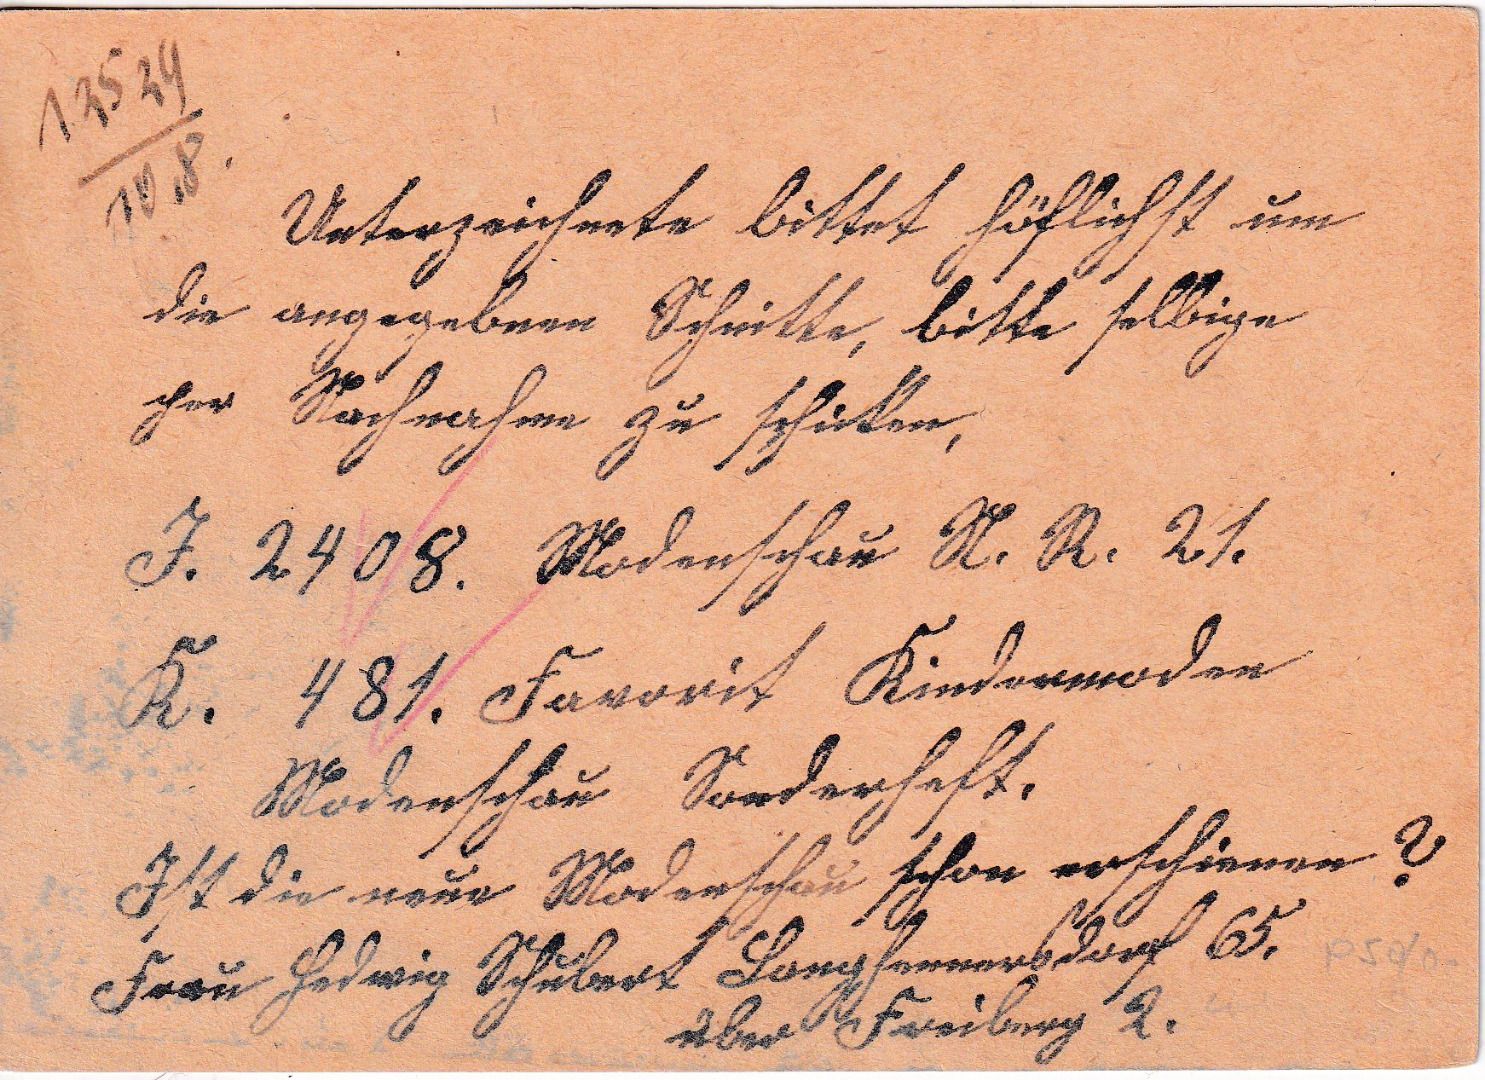 12524
10.8.
Unterzeichnete bittet höflichst um
die angegebnen Schnitte, bitte selbige
per Nachnahme zu schicken,
J. 2408. Modenschau N. R. 21.
K. 481. Favorit Kindermoden
Modenschau Sonderheft.
Ist die neue Modenschau schon erschienen?
Frau Hedwig Schubert Langhennersdorf 65.
über Freiberg 2.